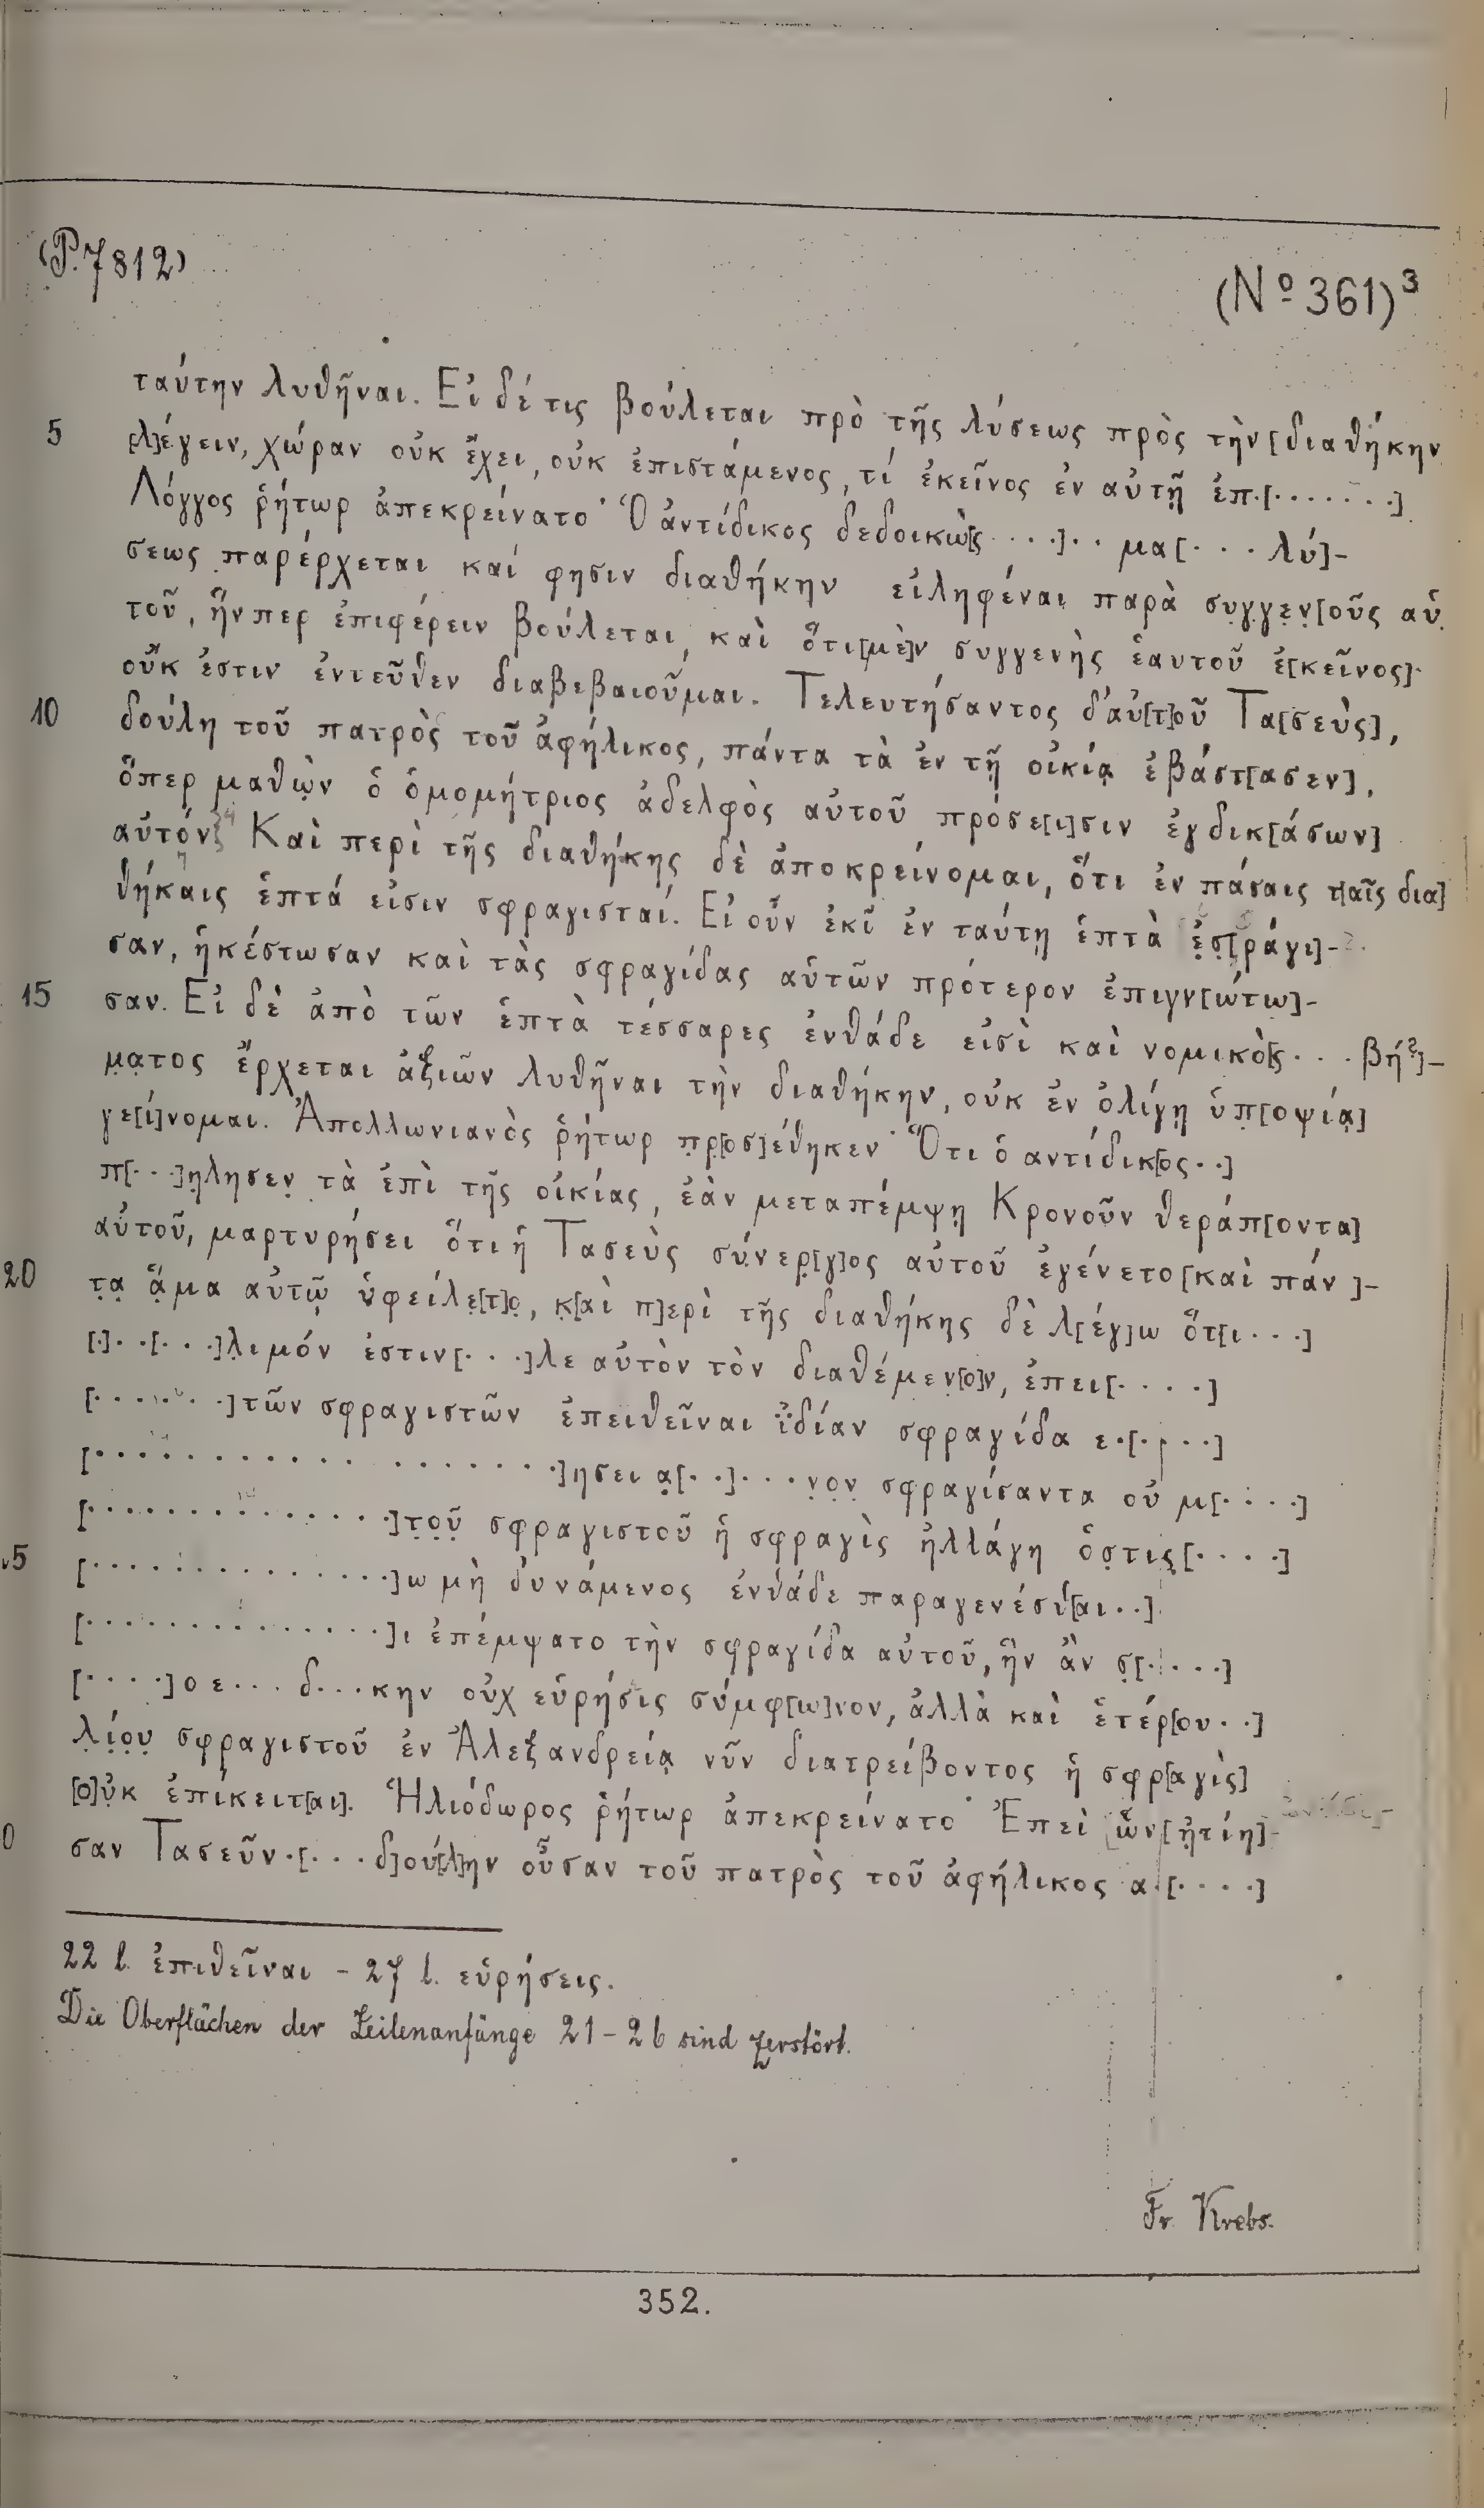 (P. 7812)
(Nº 361)³
ταύτην λυθῆναι. Εἰ δέ τις βούλεται πρὸ τῆς λύσεως πρὸς τὴν [διαθήκην
5 [λ]έγειν, χώραν οὐκ ἔχει, οὐκ ἐπιστάμενος, τί ἐκεῖνος ἐν αὐτῇ ἐπ.[.......]
Λόγγος ῥήτωρ ἀπεκρείνατο· Ὁ ἀντίδικος δεδοικὼ[ς ....].. μα[... λύ]-
σεως παρέρχεται καί φησιν διαθήκην εἰληφέναι παρὰ συγγεν[οῦς αὐ
τοῦ, ἥνπερ ἐπιφέρειν βούλεται, καὶ ὅτι [μὲ]ν συγγενὴς ἑαυτοῦ ἐ[κεῖνος]
οὔκ ἐστιν ἐντεῦθεν διαβεβαιοῦμαι. Τελευτήσαντος δ' αὐ[τ]οῦ Τα[σεὺς],
10 δούλη τοῦ πατρὸς τοῦ ἀφήλικος, πάντα τὰ ἐν τῇ οἰκίᾳ ἐβάστ[ασεν],
ὅπερ μαθὼν ὁ ὁμομήτριος ἀδελφὸς αὐτοῦ πρόσε[ι]σιν ἐγδικ[άσων]
αὐτόν. Καὶ περὶ τῆς διαθήκης δὲ ἀποκρείνομαι, ὅτι ἐν πάσαις τ[αῖς δια]
θήκαις ἑπτά εἰσιν σφραγισταί. Εἰ οὖν ἐκῖ ἐν ταύτῃ ἑπτὰ ἐσ[φράγι]-
σαν, ἡκέστωσαν καὶ τὰς σφραγίδας αὑτῶν πρότερον ἐπιγν[ώτω]-
15 σαν. Εἰ δὲ ἀπὸ τῶν ἑπτὰ τέσσαρες ἐνθάδε εἰσὶ καὶ νομικὸ[ς ... βή?]-
ματος ἔρχεται ἀξιῶν λυθῆναι τὴν διαθήκην, οὐκ ἐν ὀλίγῃ ὑπ[οψίᾳ]
γε[ί]νομαι. Ἀπολλωνιανὸς ῥήτωρ πρ[οσ]έθηκεν· Ὅτι ὁ αντίδικ[ος ..]
π[...]ηλησεν τὰ ἐπὶ τῆς οἰκίας, ἐὰν μεταπέμψῃ Κρονοῦν θεράπ[οντα]
αὐτοῦ, μαρτυρήσει ὅτι ἡ Τασεὺς σύνερ[γ]ος αὐτοῦ ἐγένετο [καὶ πάν]-
20 τα ἅμα αὐτῷ ὑφείλε[τ]ο, κ[αὶ π]ερὶ τῆς διαθήκης δὲ λ[έγ]ω ὅτ[ι ...]
[.]..[...]λιμόν ἐστιν [...]λε αὐτὸν τὸν διαθέμεν[ο]ν, ἐπει[....]
[........] τῶν σφραγιστῶν ἐπειθεῖναι ἰδίαν σφραγίδα ε.[....]
[..................]ησει α[..]...νον σφραγίσαντα οὐ μ[....]
[..............] τοῦ σφραγιστοῦ ἡ σφραγὶς ἠλλάγη ὅστις [....]
5 [..............]ω μὴ δυνάμενος ἐνθάδε παραγενέσθ[αι ..]
[..............]ι ἐπέμψατο τὴν σφραγίδα αὐτοῦ, ἣν ἂν σ[.....]
[....]ο ε... δ...κην οὐχ εὑρήσις σύμφ[ω]νον, ἀλλὰ καὶ ἑτέρ[ου ..]
λίου σφραγιστοῦ ἐν Ἀλεξανδρείᾳ νῦν διατρείβοντος ἡ σφρ[αγὶς]
[ο]ὐκ ἐπίκειτ[αι]. Ἡλιόδωρος ῥήτωρ ἀπεκρείνατο· Ἐπεὶ ὧν [ᾐτίη]-
0 σαν Τασεῦν .[... δ]ού[λ]ην οὖσαν τοῦ πατρὸς τοῦ ἀφήλικος α.[....]
22 l. ἐπιθεῖναι - 27 l. εὑρήσεις.
Die Oberflächen der Zeilenanfänge 21-26 sind zerstört.
Fr. Krebs.
352.